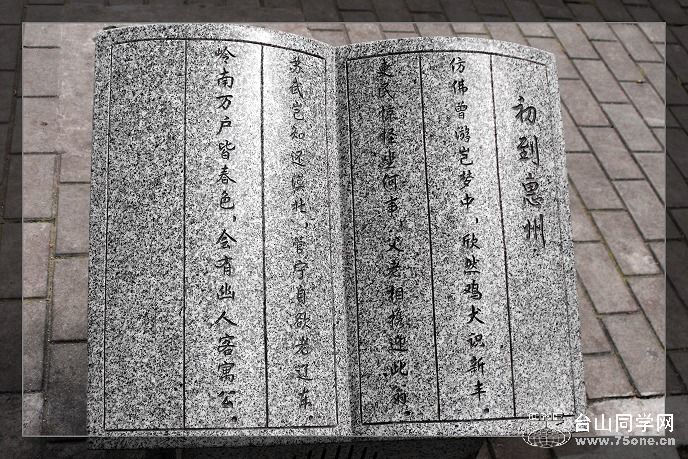 初到惠州
仿佛曾游岂梦中，欣然鸡犬识新丰。
吏民惊怪坐何事，父老相携迎此翁。
苏武岂知还漠北，管宁自欲老辽东。
岭南万户皆春色，会有幽人客寓公。
台山同学网
www.75one.cn